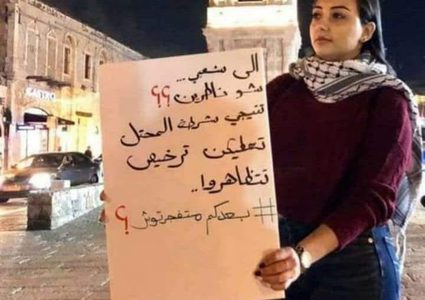 الى شعبي...
شو ناطرين؟؟
تنيجي شرطة المحتل
تعطيكن ترخيص
تتظاهروا..
#بعدكم متفجرتوش؟